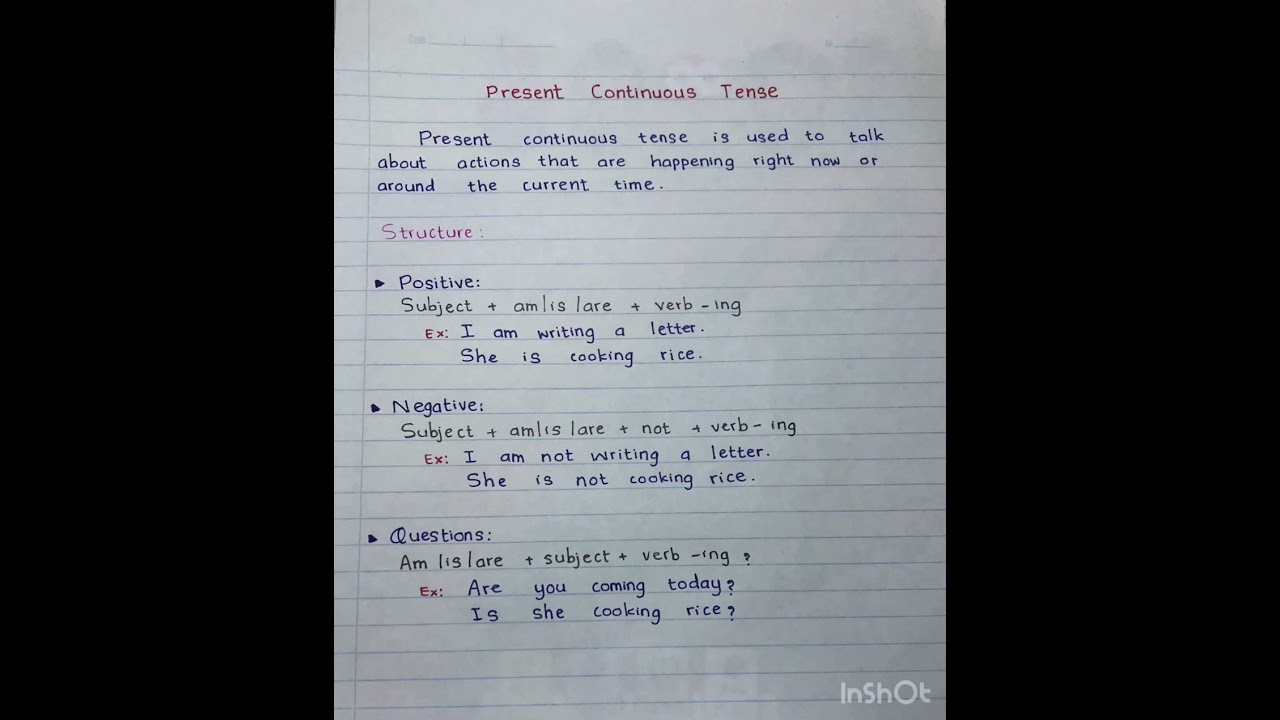 Date
No
Present Continuous Tense
Present continuous tense is used to talk
about actions that are happening right now or
around the current time.
Structure:
▸ Positive:
Subject + am/is/are + verb-ing
Ex: I am writing a letter.
She is cooking rice.
▸ Negative:
Subject + am/is/are + not + verb-ing
Ex: I am not writing a letter.
She is not cooking rice.
▸ Questions:
Am/is/are + subject + verb-ing?
Ex: Are you coming today?
Is she cooking rice?
InShOt